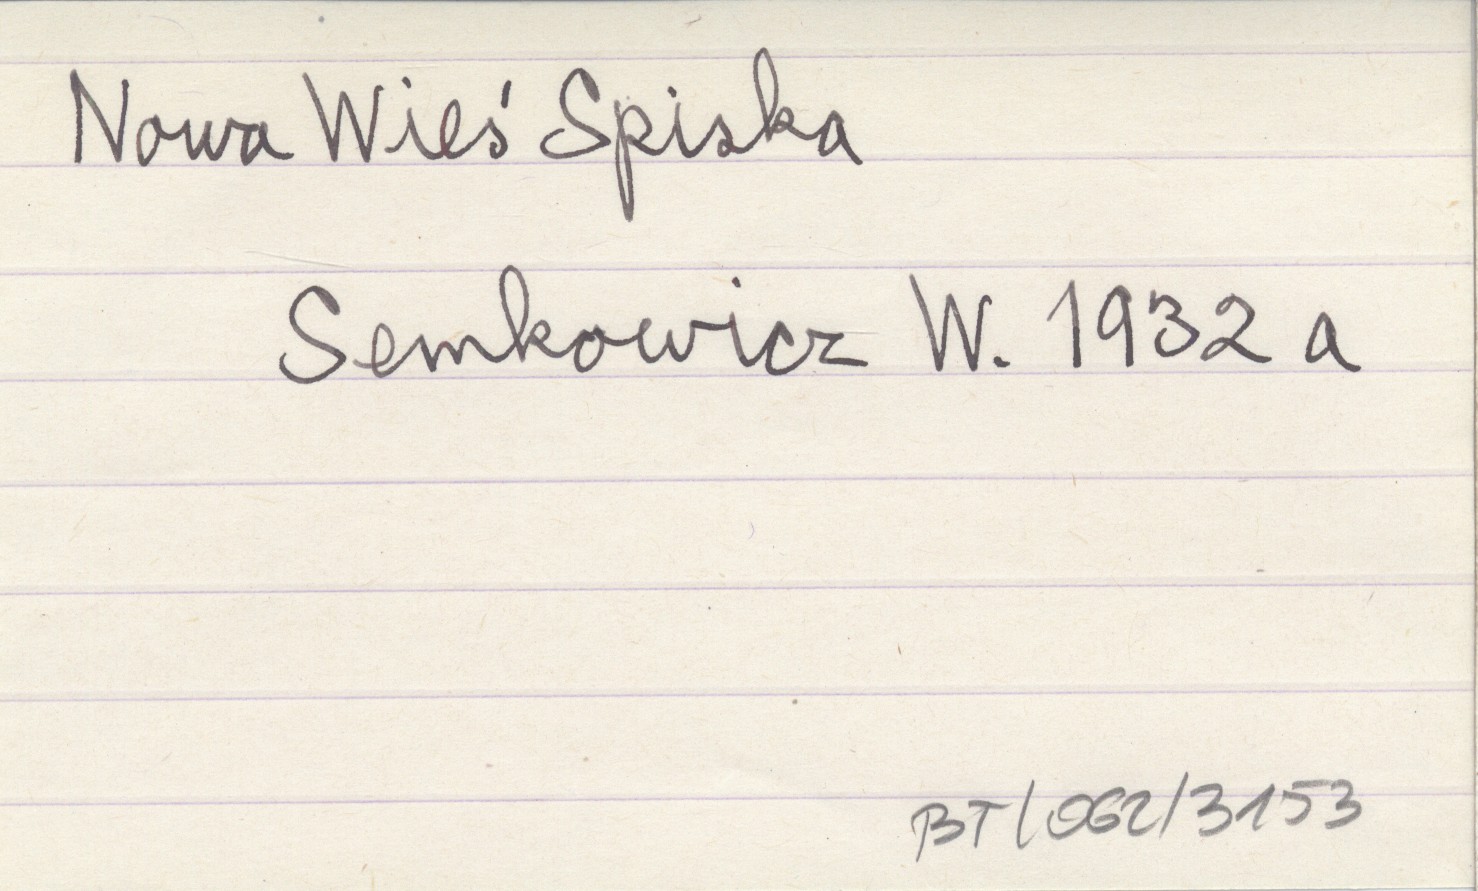 Nowa Wieś Spiska
Semkowicz W. 1932 a
BT/062/3153